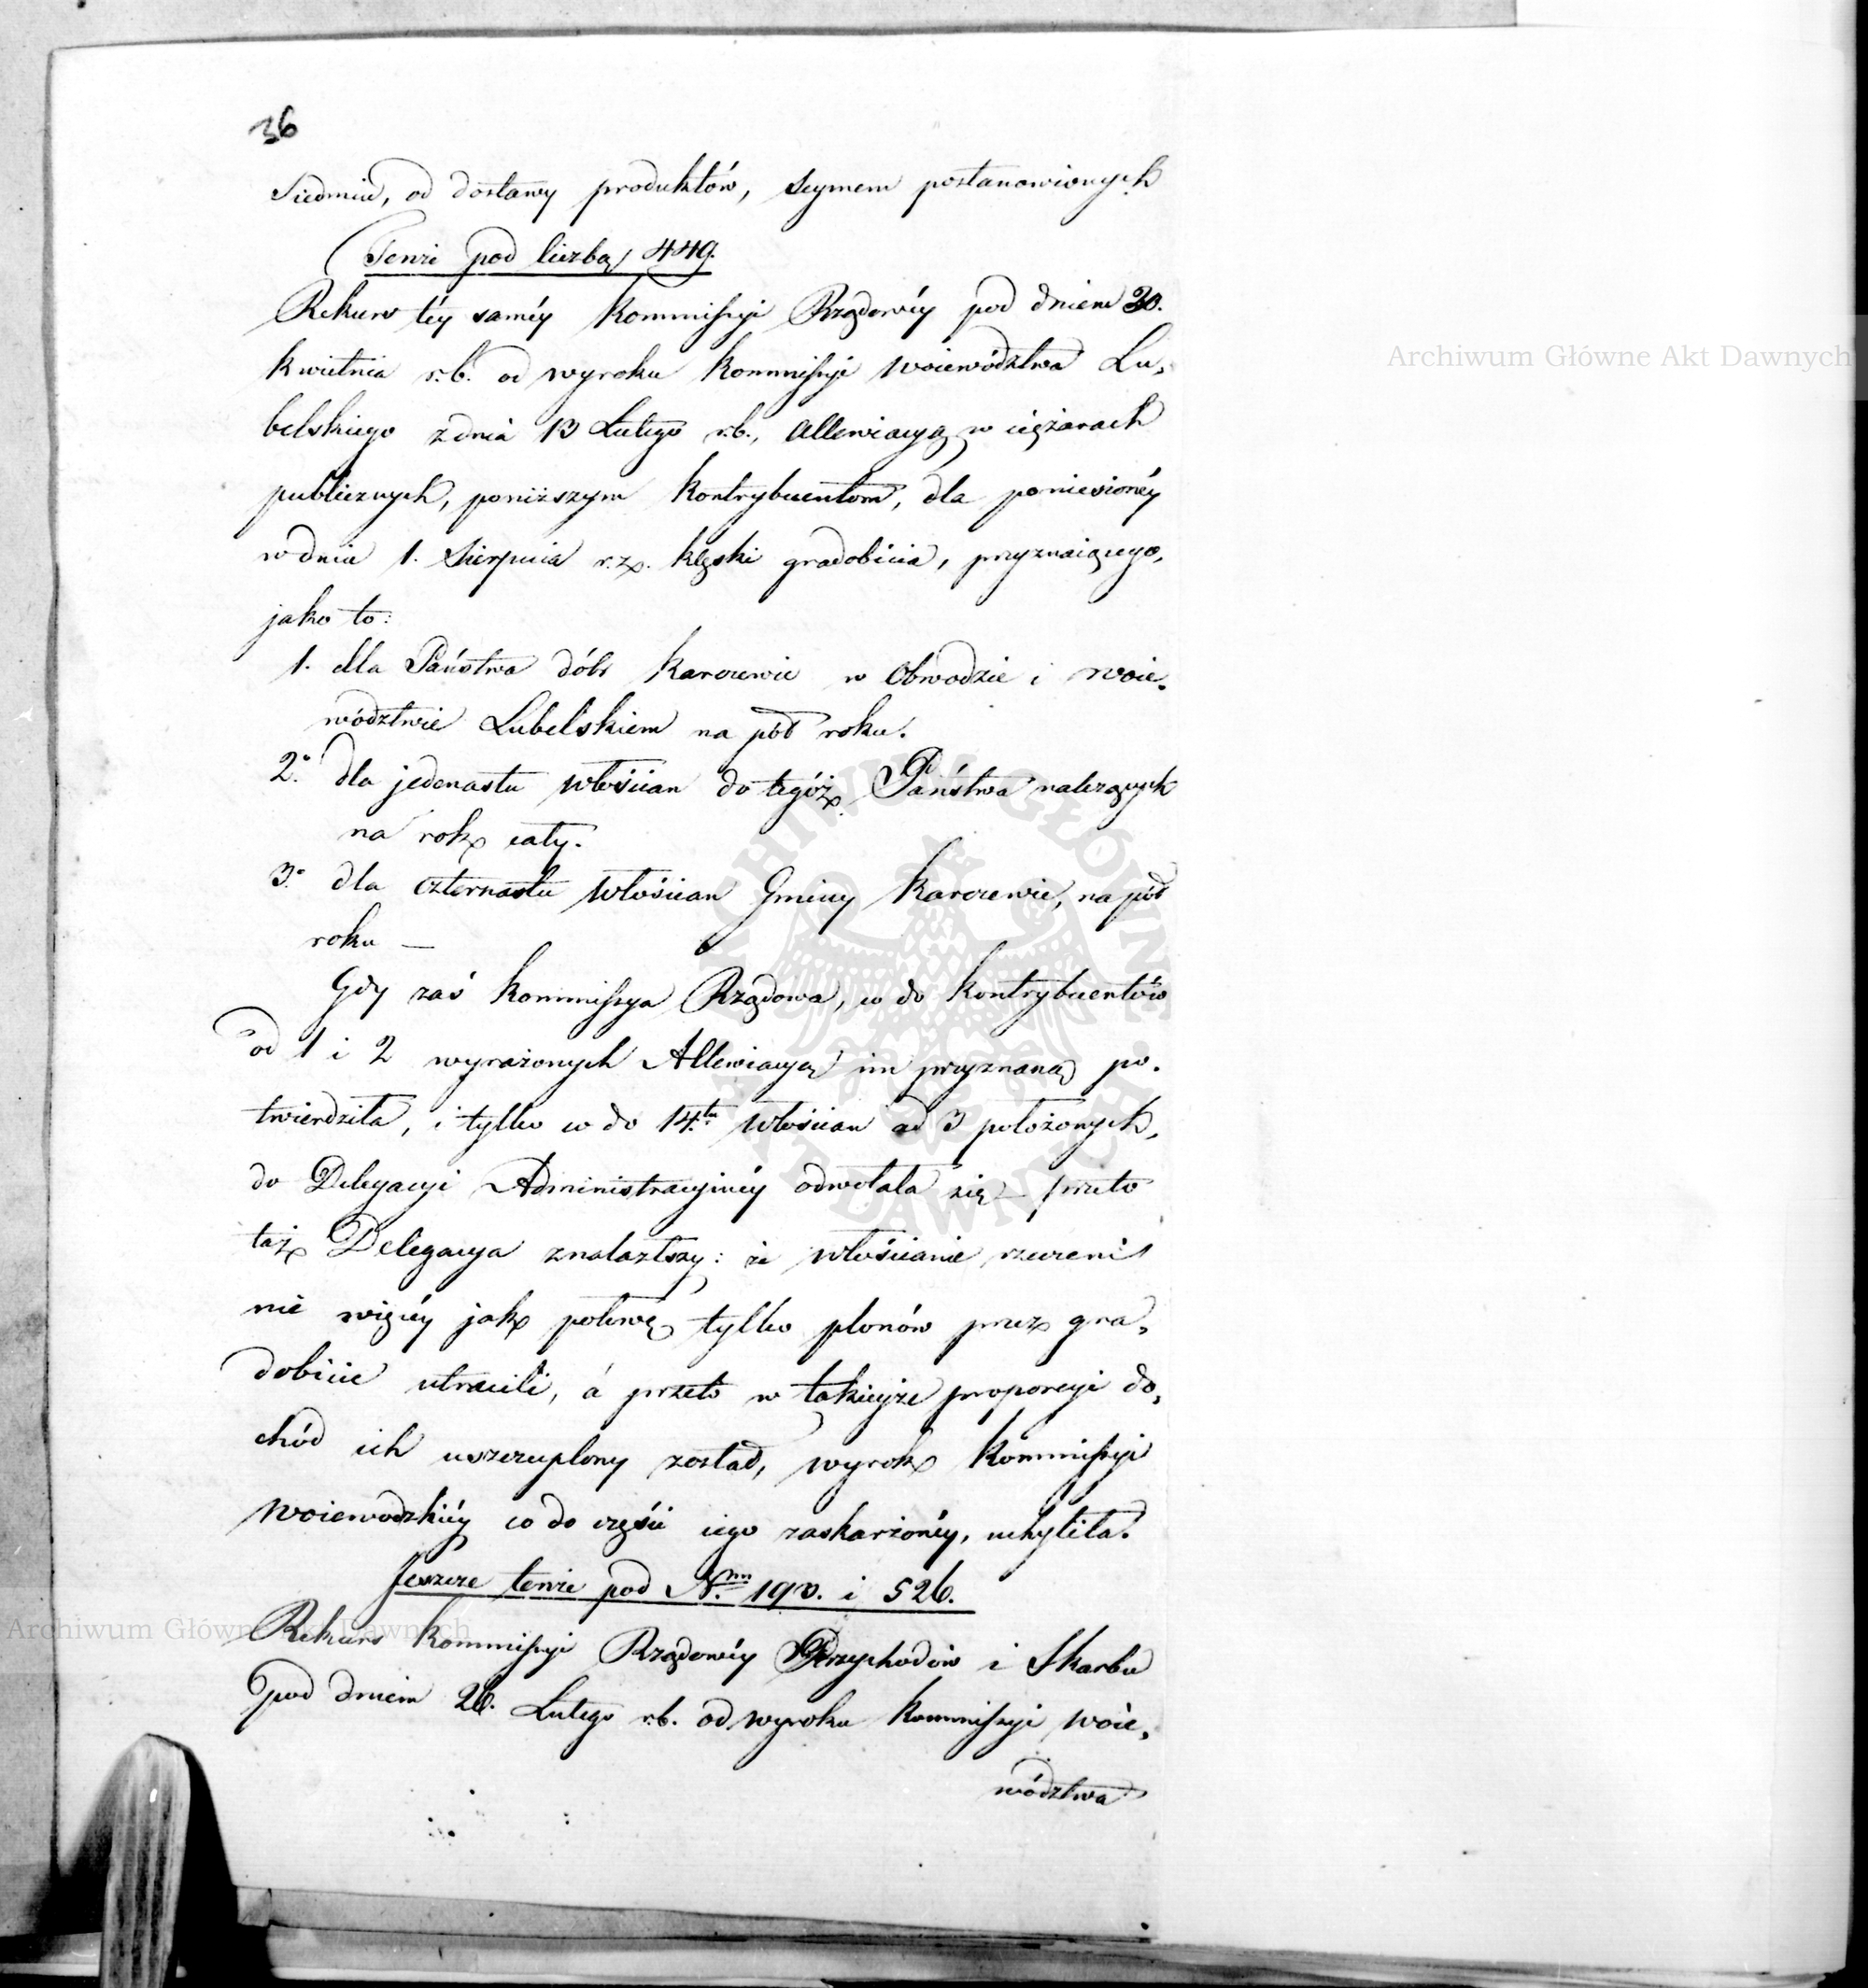 36
Siedmiu, od dostawy produktów, Seymem postanowionych
Tenże pod liczbą 449.
Rekurs téy saméy Kommissyi Rządowéy pod dniem 30.
kwietnia r.b. od wyroku Kommissyi Woiewództwa Lu„
belskiego z dnia 13 Lutego r.b., Allewiacyą w ciężarach
publicznych, poniższym kontrybuentom, dla poniesionéy
w dniu 1. Sierpnia r.z. klęski gradobicia, przyznaiącego,
jako to:
1. dla Państwa dóbr Karczewie w Obwodzie i Woie„
wództwie Lubelskiem na pół roku.
2.° dla jedenastu włościan do tegóż Państwa należących
na rok cały.
3.° dla czternastu włościan Gminy Karczewie, na pół
roku —
Gdy zaś Kommissya Rządowa, co do kontrybuentów
ad 1 i 2 wyrażonych Allewiacyą im przyznaną po„
twierdziła, i tylko co do 14.tu włościan ad 3 położonych,
do Delegacyi Administracyinéy odwołała się – przeto
taż Delegacya znalazłszy: że włościanie rzeczeni
nie więcéy jak połowę tylko plonów przez gra„
dobicie utracili, á przeto w takieyże proporcyi do„
chód ich uszczuplony został, wyrok Kommissyi
Woiewodzkiéy co do części iego zaskarżonéy, uchyliła.
Jeszcze tenże pod N.nn 190. i 526.
Rekurs Kommissyi Rządowéy Przychodów i Skarbu
pod dniem 26. Lutego r.b. od wyroku Kommissyi Woie„
wództwa
Archiwum Główne Akt Dawnych
Archiwum Główne Akt Dawnych
ARCHIWUM GŁÓWNE AKT DAWNYCH